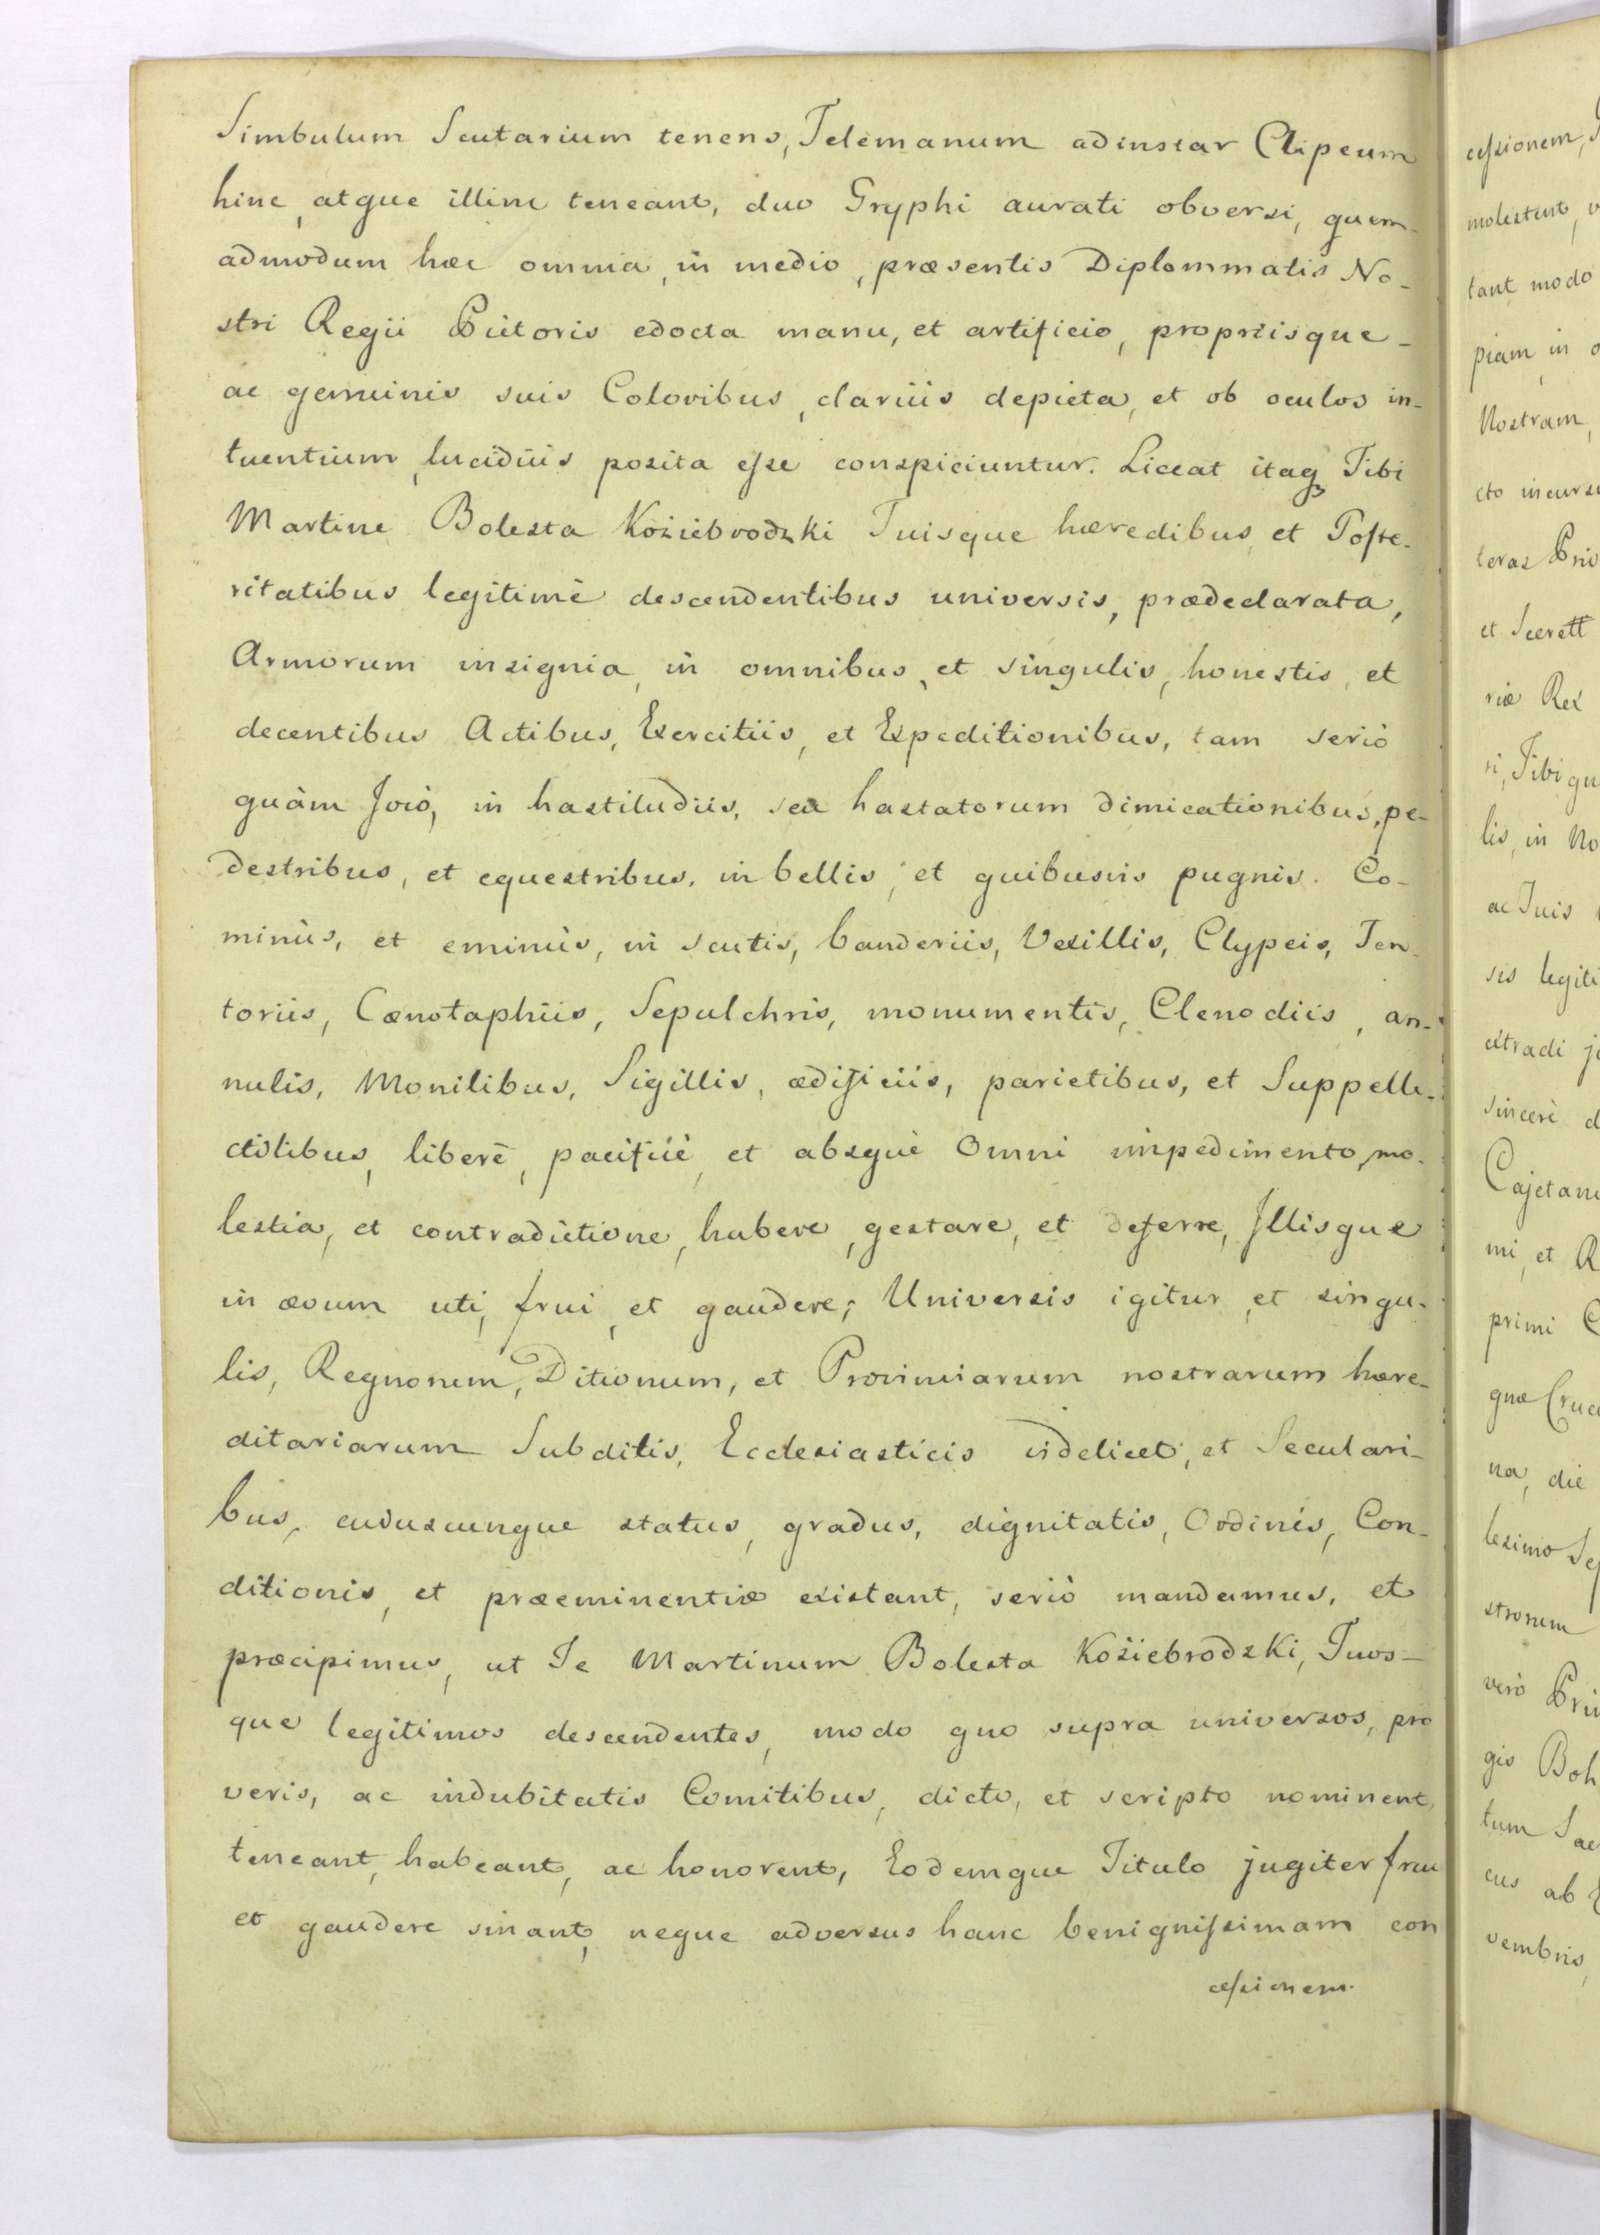 Simbulum Scutarium tenens, Telemanum ad instar Clipeum
hinc, atque illinc teneant, duo Gryphi aurati obversi, quem-
admodum hæc omnia, in medio, præsentis Diplommatis No-
stri Regii Pictoris edocta manu, et artificio, propriisque-
ac genuinis suis Coloribus, clariùs depicta, et ob oculos in-
tuentium, lucidiùs posita eſse conspiciuntur. Liceat itaq Tibi
Martine Bolesta Koziebrodzki Tuisque hæredibus, et Poſte-
ritatibus legitimè descendentibus universis, prædeclarata,
Armorum insignia, in omnibus, et singulis, honestis, et
decentibus Actibus, Exercitiis, et Expeditionibus, tam seriò
quàm Jocò, in hastiludiis, seu hastatorum dimicationibus, pe-
destribus, et equestribus, in bellis, et quibusvis pugnis. Co-
minùs, et eminùs, in scutis, banderiis, Vexillis, Clypeis, Ten-
toriis, Cænotaphiis, Sepulchris, monumentis, Clenodiis, an-
nulis, Monilibus, Sigillis, ædificiis, parietibus, et Suppelle-
ctilibus, liberè, pacificè, et absque omni impedimento, mo-
lestia, et contradictione, habere, gestare, et deferre, Illisque
in ævum uti, frui, et gaudere; Universis igitur, et singu-
lis, Regnorum, Ditionum, et Provinciarum nostrarum hære-
ditariarum Subditis, Ecclesiasticis videlicet, et Seculari-
bus, cujuscunque status, gradus, dignitatis, Ordinis, Con-
ditionis, et præeminentiæ existant, seriò mandamus, et
præcipimus, ut Te Martinum Bolesta Koziebrodzki, Tuos-
que legitimos descendentes, modo quo supra universos, pro
veris, ac indubitatis Comitibus, dicto, et scripto nominent,
teneant, habeant, ac honorent, Eodemque Titulo jugiter frui
et gaudere sinant, neque adversus hanc benigniſsimam con
ceſsionem.
ceſsionem,
molestent,
tant modo
piam, in
Nostram,
cto incurs
teras Priv
et Secrett
riæ Rex
ri, Tibi qu
lis, in No
ac Tuis
sis legiti
extradi
sincerè d
Cajetan
mi, et R
primi C
gnæ Cruc
na, die
lesimo Se
strorum
verò Pri
gis Boh
tum Sa
cus ab
vembris,